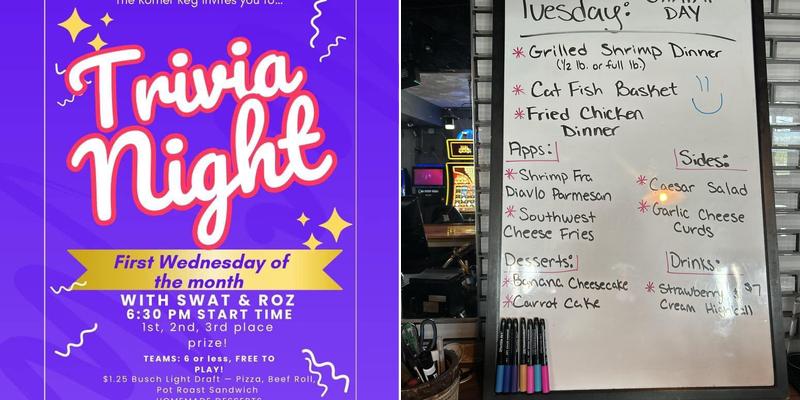 The Korner Keg invites you to...
Trivia
Night
First Wednesday of
the month
WITH SWAT & ROZ
6:30 PM START TIME
1st, 2nd, 3rd place
prize!
TEAMS: 6 or less, FREE TO
PLAY!
$1.25 Busch Light Draft — Pizza, Beef Roll,
Pot Roast Sandwich
HOMEMADE DESSERTS
Tuesday:
DAY
* Grilled Shrimp Dinner
(1/2 lb. or full lb.)
* Cat Fish Basket
* Fried Chicken
Dinner
Apps:
* Shrimp Fra
Diavlo Parmesan
* Southwest
Cheese Fries
Sides:
* Caesar Salad
* Garlic Cheese
Curds
Desserts:
* Banana Cheesecake
* Carrot Cake
Drinks:
* Strawberry & $7
Cream